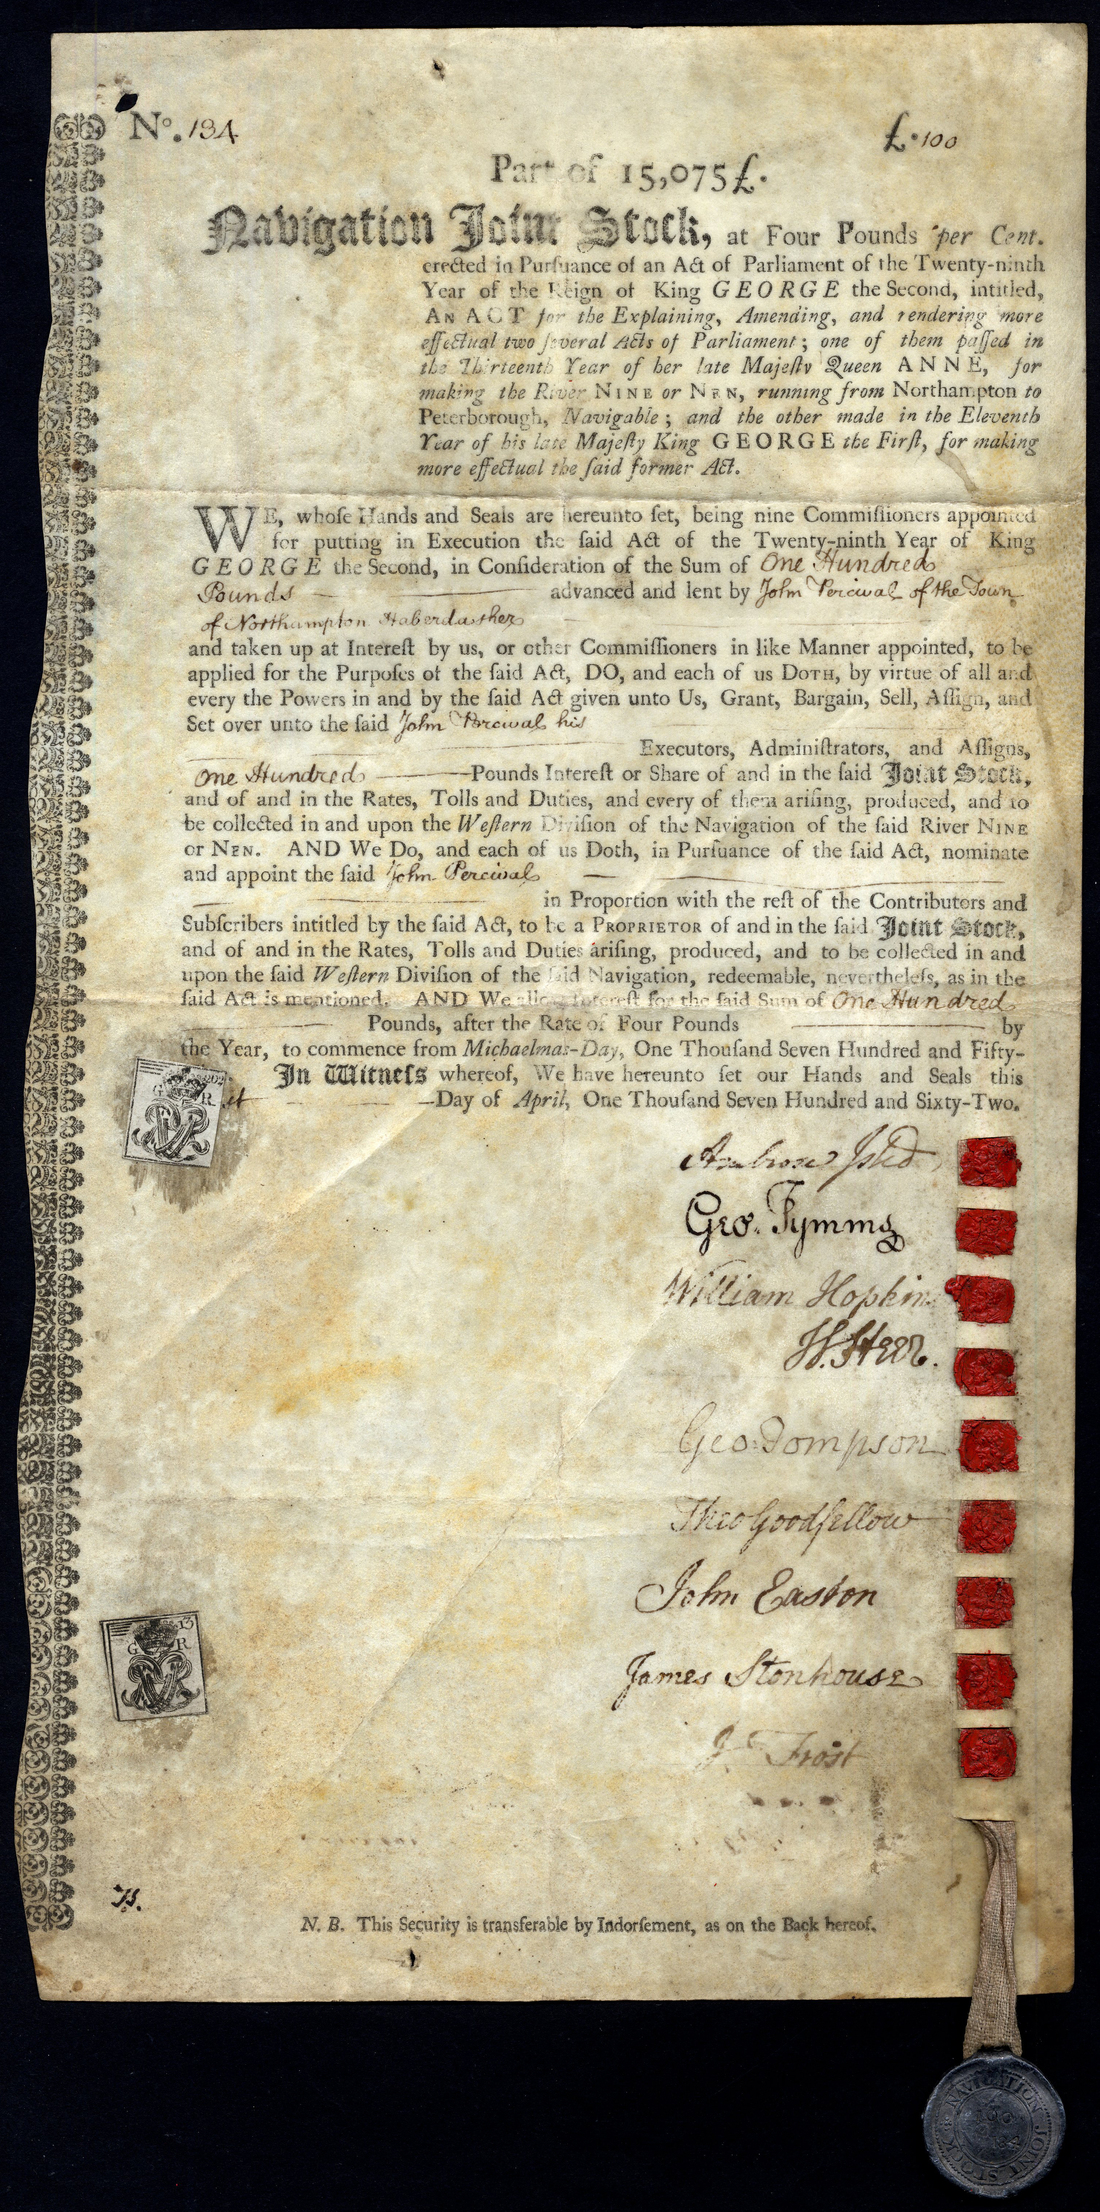 No. 134
£. 100
Part of 15,075 £.
Navigation Joint Stock, at Four Pounds per Cent.
erected in Purſuance of an Act of Parliament of the Twenty-ninth
Year of the Reign of King GEORGE the Second, intitled,
AN ACT for the Explaining, Amending, and rendering more
effectual two ſeveral Acts of Parliament; one of them paſſed in
the Thirteenth Year of her late Majeſty Queen ANNE, for
making the River NINE or NEN, running from Northampton to
Peterborough, Navigable; and the other made in the Eleventh
Year of his late Majeſty King GEORGE the Firſt, for making
more effectual the ſaid former Act.
WE, whoſe Hands and Seals are hereunto ſet, being nine Commiſſioners appointed
for putting in Execution the ſaid Act of the Twenty-ninth Year of King
GEORGE the Second, in Conſideration of the Sum of One Hundred
Pounds advanced and lent by John Percival of the Town
of Northampton Haberdasher
and taken up at Intereſt by us, or other Commiſſioners in like Manner appointed, to be
applied for the Purpoſes of the ſaid Act, DO, and each of us DOTH, by virtue of all and
every the Powers in and by the ſaid Act given unto Us, Grant, Bargain, Sell, Aſſign, and
Set over unto the ſaid John Percival his
Executors, Adminiſtrators, and Aſſigns,
One Hundred Pounds Intereſt or Share of and in the ſaid Joint Stock,
and of and in the Rates, Tolls and Duties, and every of them ariſing, produced, and to
be collected in and upon the Weſtern Diviſion of the Navigation of the ſaid River NINE
or NEN. AND We Do, and each of us Doth, in Purſuance of the ſaid Act, nominate
and appoint the ſaid John Percival
in Proportion with the reſt of the Contributors and
Subſcribers intitled by the ſaid Act, to be a PROPRIETOR of and in the ſaid Joint Stock,
and of and in the Rates, Tolls and Duties ariſing, produced, and to be collected in and
upon the ſaid Weſtern Diviſion of the ſaid Navigation, redeemable, nevertheleſs, as in the
ſaid Act is mentioned. AND We allow Intereſt for the ſaid Sum of One Hundred
Pounds, after the Rate of Four Pounds by
the Year, to commence from Michaelmas-Day, One Thouſand Seven Hundred and Fifty-
In Witneſs whereof, We have hereunto ſet our Hands and Seals this
Day of April, One Thouſand Seven Hundred and Sixty-Two.
G R
Ambrose Isted
Geo. Tymms
William Hopkins
W. Steer.
Geo: Tompson
Theo Goodfellow
John Easton
James Stonhouse
J. Frost
13
G R
N. B. This Security is transferable by Indorſement, as on the Back hereof.
NAVIGATION JOINT STOCK
100
134